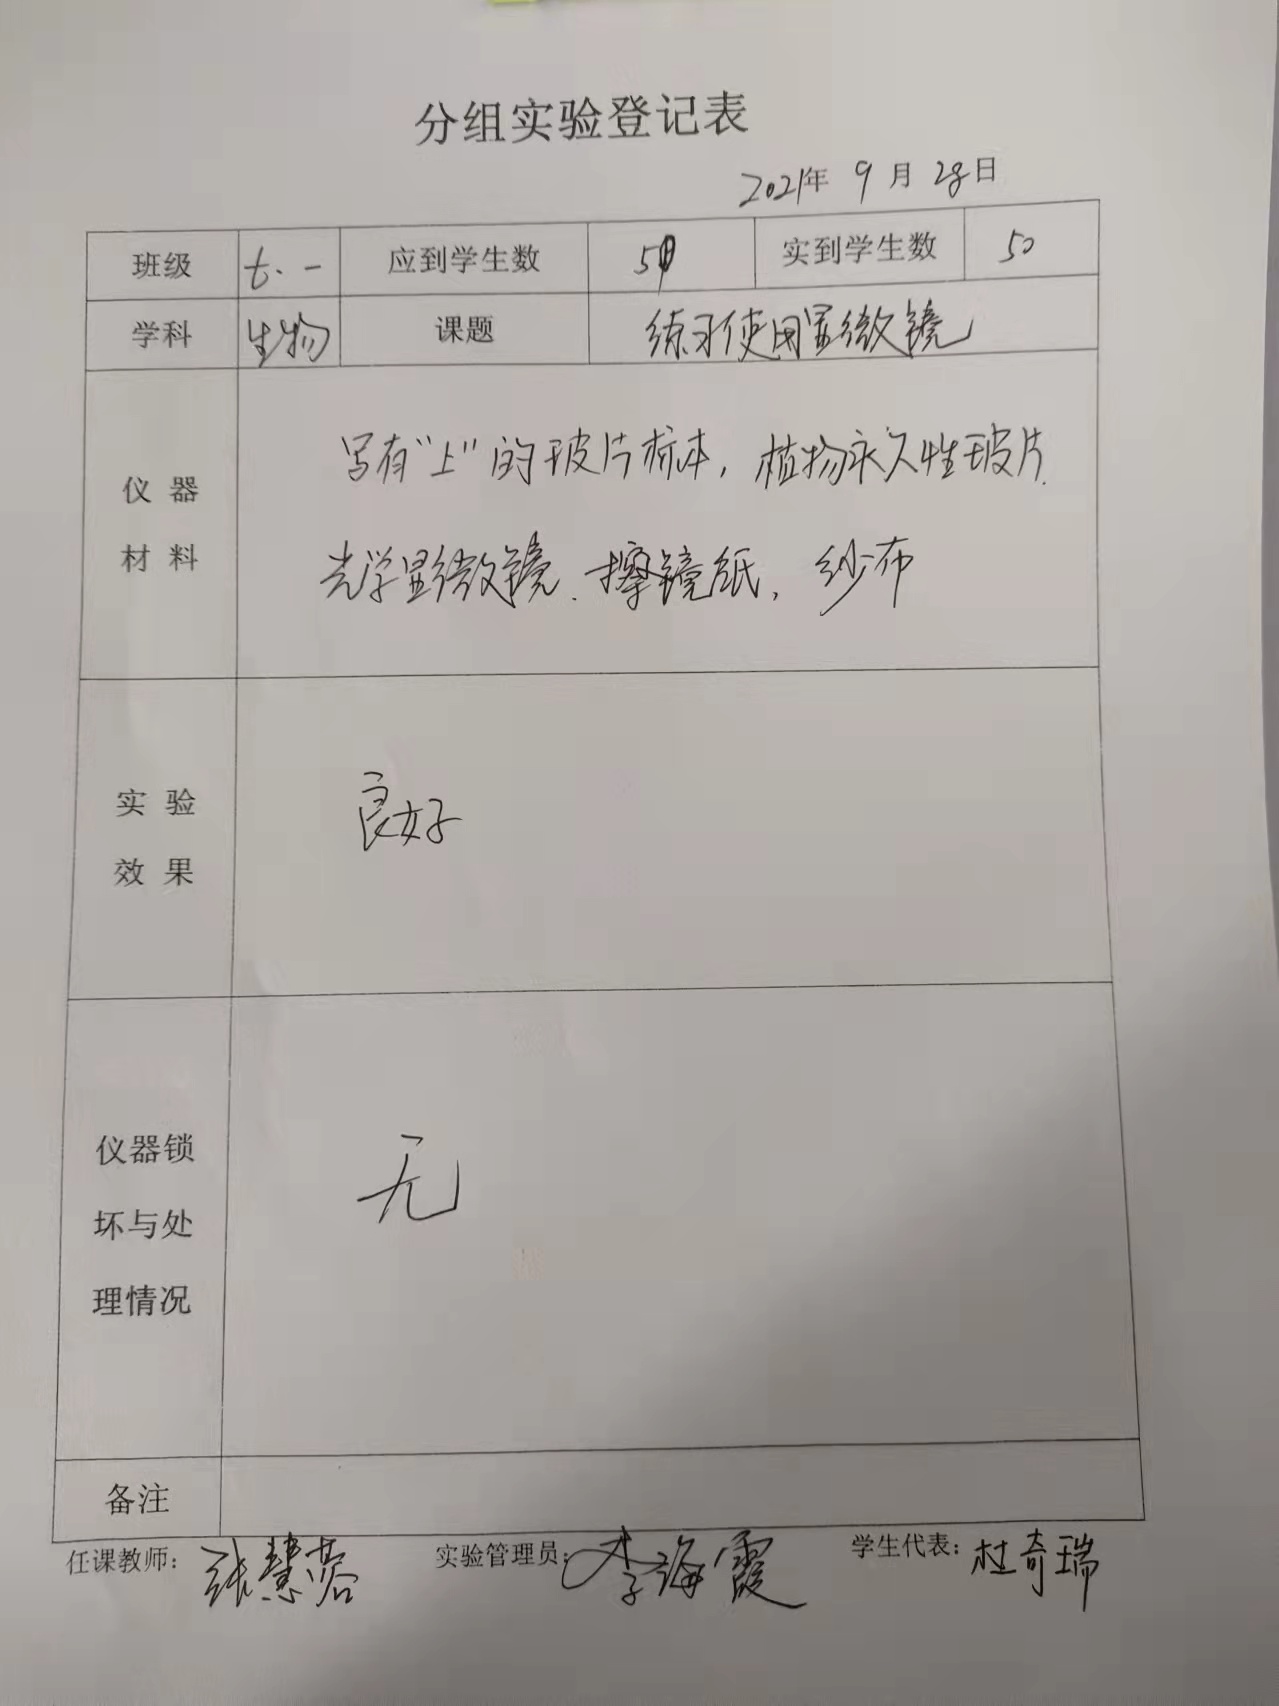 分组实验登记表
2021年 9月 28日
班级 七.一 应到学生数 50 实到学生数 50
学科 生物 课题 练习使用显微镜
仪器
材料
写有“上”的玻片标本，植物永久性玻片.
光学显微镜.擦镜纸，纱布
实验
效果
良好
仪器锁
坏与处
理情况
无
备注
任课教师：张慧蓉 实验管理员：李海霞 学生代表：杜奇瑞